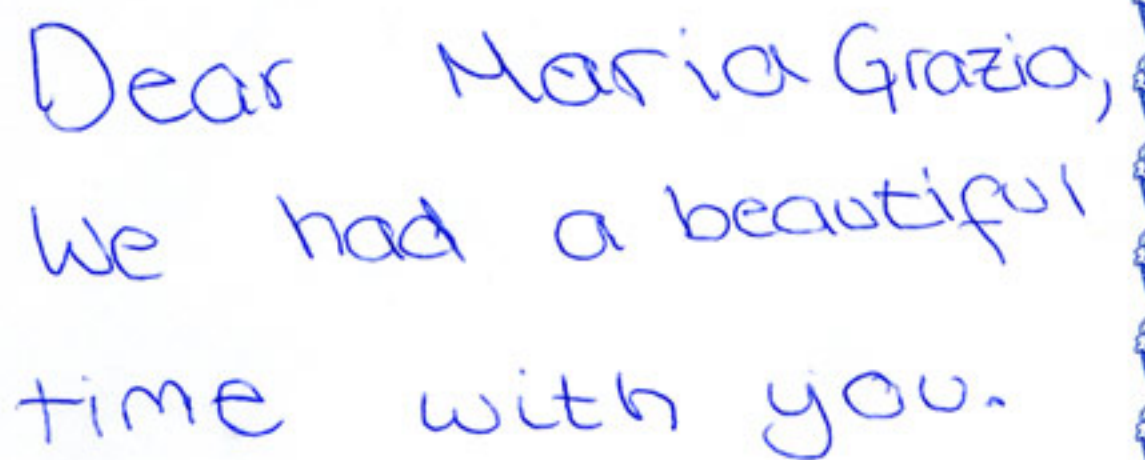 Dear Maria Grazia,
We had a beautiful
time with you.